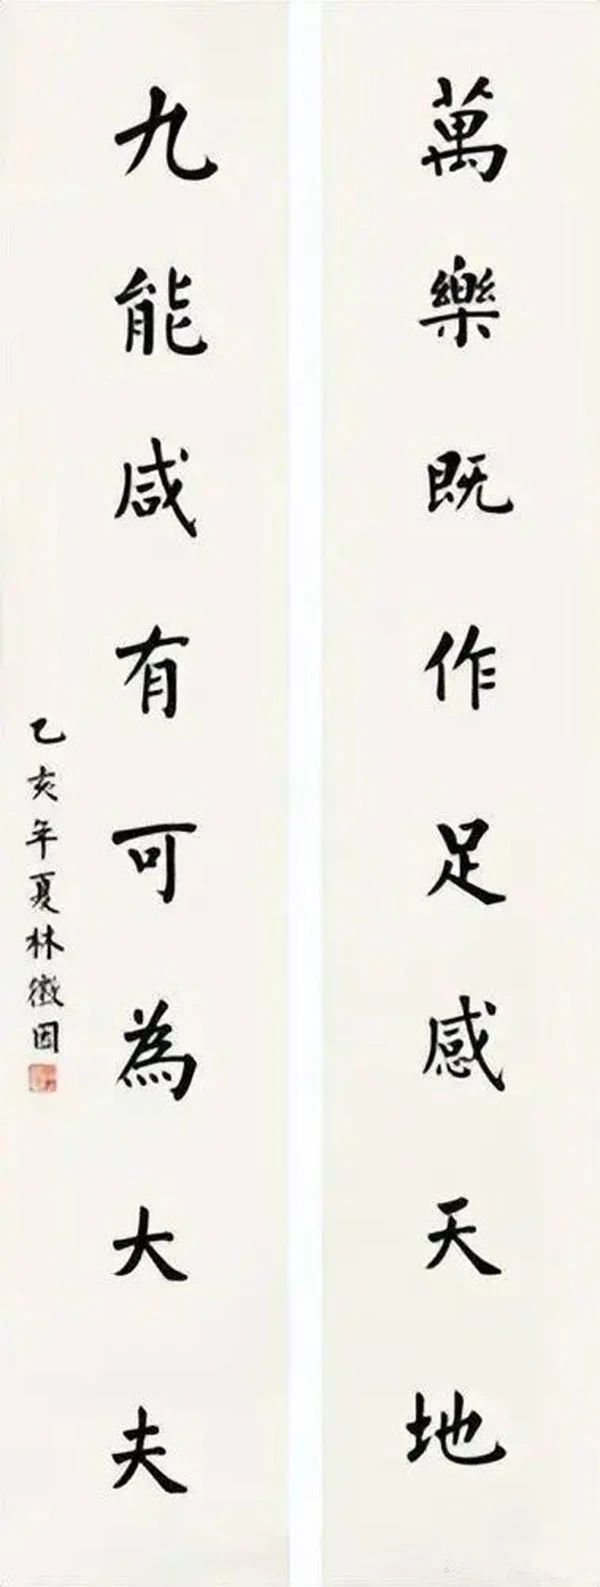 萬樂既作足感天地
九能咸有可為大夫
乙亥年夏林徽因